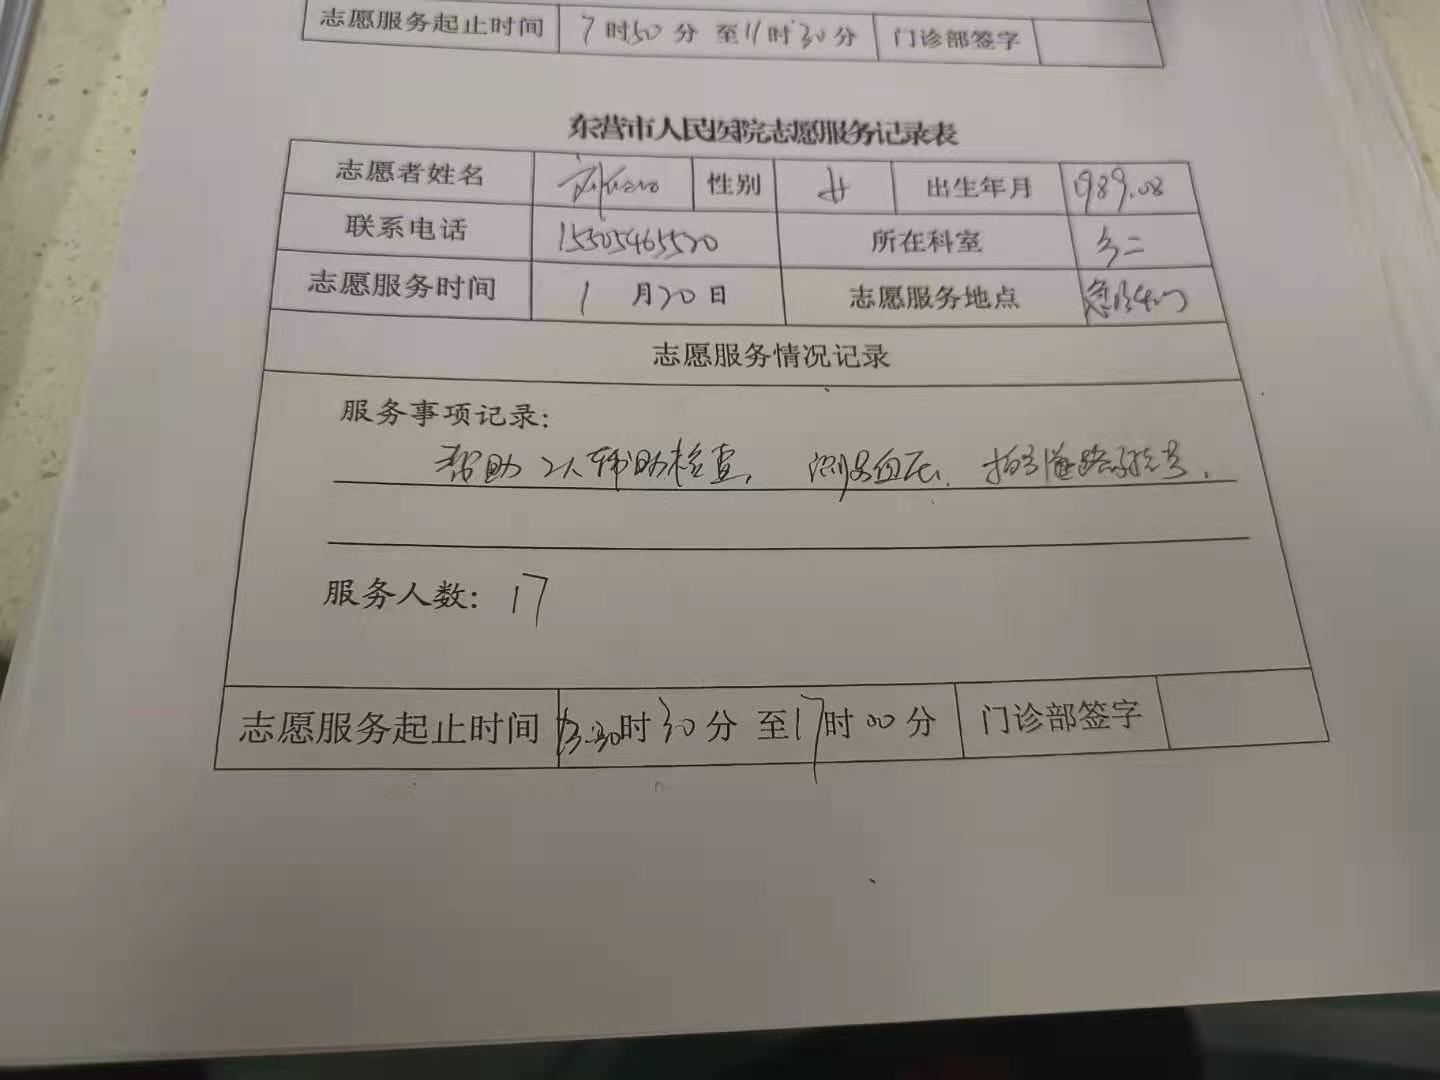 志愿服务起止时间 7时50分 至11时30分 门诊部签字
东营市人民医院志愿服务记录表
志愿者姓名 性别 女 出生年月 1989.08
联系电话 15305465520 所在科室
志愿服务时间 1月20日 志愿服务地点
志愿服务情况记录
服务事项记录:
帮助 2人辅助检查, 测量血压、
服务人数: 17
志愿服务起止时间 13:30时30分 至17时00分 门诊部签字